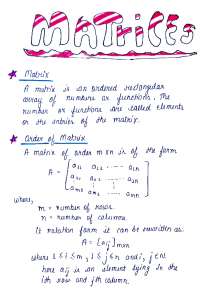 MATRICES
Matrix
A matrix is an ordered rectangular
array of numbers or functions. The
number or functions are called elements
or the entries of the matrix.
Order of Matrix
A matrix of order m×n is of the form
A = [ a11 a12 ...... a1n
a21 a22 ...... a2n
am1 am2 ...... amn ]
where,
m = number of rows.
n = number of columns.
It notation form it can be rewritten as:
A = [aij]m×n
where 1≤i≤m, 1≤j≤n and i, j∈N
here aij is an element lying in the
ith row and jth column.